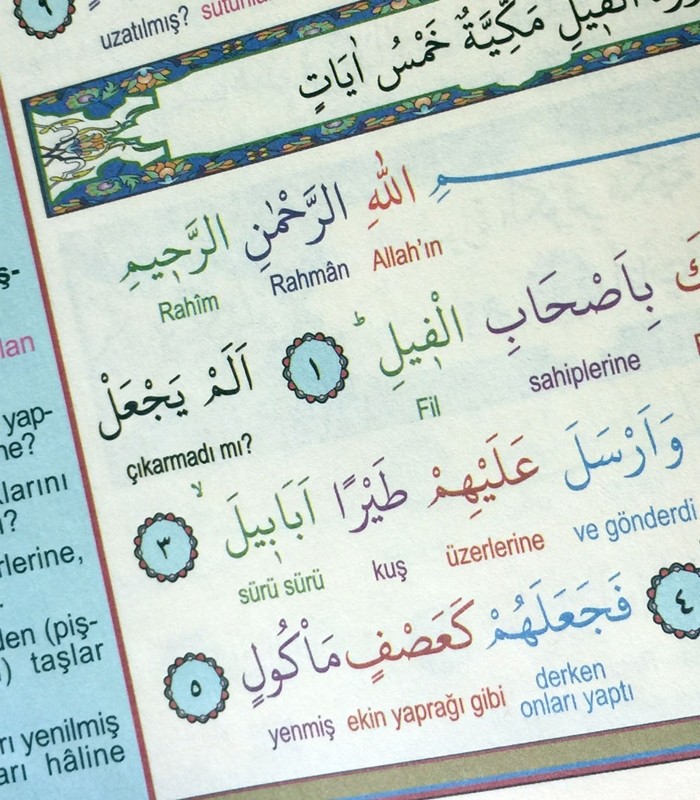 ٩
uzatılmış?
الْفٖيلِ مَكِّيَّةٌ خَمْسُ اٰيَاتٍ
اللّٰهِ الرَّحْمٰنِ الرَّحٖيمِ
Allah'ın Rahmân Rahîm
بِاَصْحَابِ الْفٖيلِؕ ﴿١﴾ اَلَمْ يَجْعَلْ
sahiplerine Fil çıkarmadı mı?
وَاَرْسَلَ عَلَيْهِمْ طَيْرًا اَبَابٖيلَۙ ﴿٣﴾
ve gönderdi üzerlerine kuş sürü sürü
﴿٤﴾ فَجَعَلَهُمْ كَعَصْفٍ مَاْكُولٍ ﴿٥﴾
derken onları yaptı ekin yaprağı gibi yenmiş
taşlar
yenilmiş
hâline